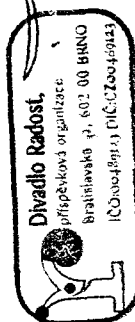 Divadlo Radost,
příspěvková organizace
Bratislavská 32, 602 00 BRNO
IČO:00489123 DIČ:CZ00489123